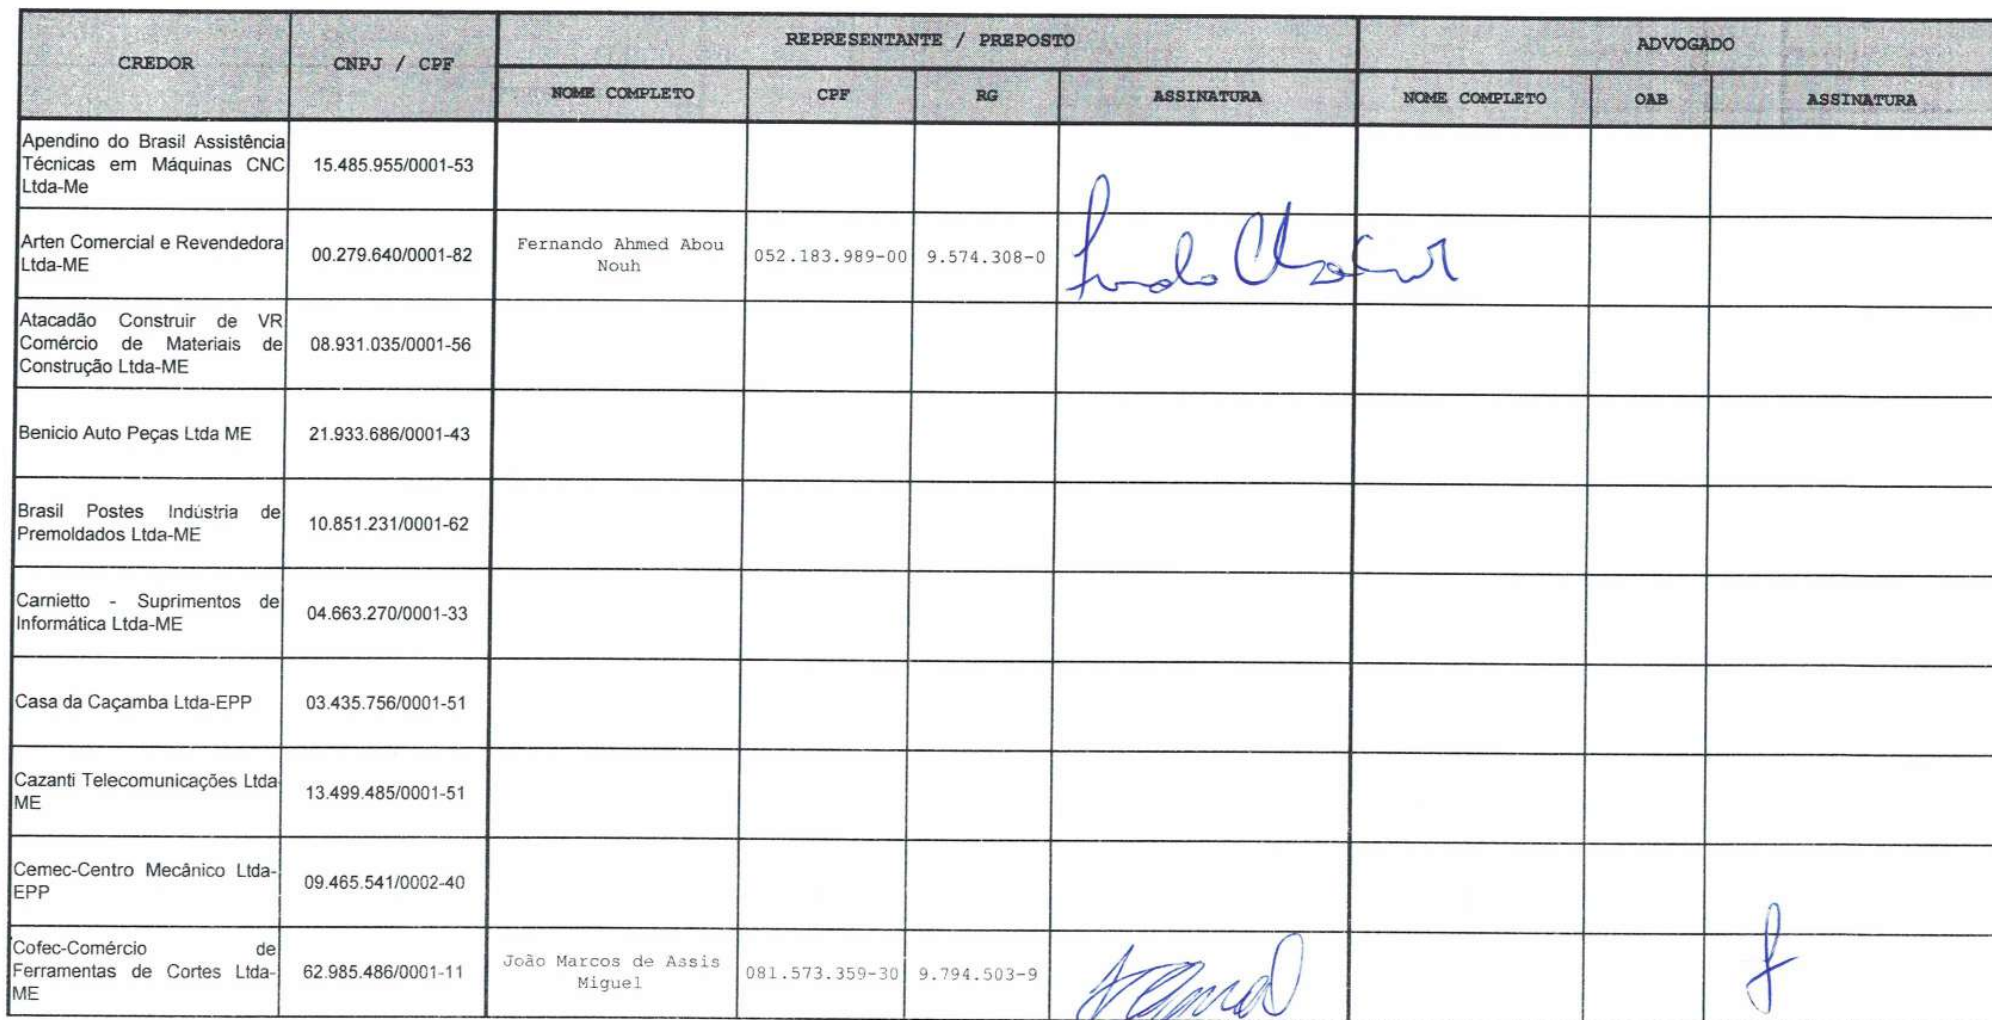 REPRESENTANTE / PREPOSTO
ADVOGADO
CREDOR
CNPJ / CPF
NOME COMPLETO
CPF
RG
ASSINATURA
NOME COMPLETO
OAB
ASSINATURA
Apendino do Brasil Assistência
Técnicas em Máquinas CNC
Ltda-Me
15.485.955/0001-53
Arten Comercial e Revendedora
Ltda-ME
00.279.640/0001-82
Fernando Ahmed Abou
Nouh
052.183.989-00
9.574.308-0
Atacadão Construir de VR
Comércio de Materiais de
Construção Ltda-ME
08.931.035/0001-56
Benicio Auto Peças Ltda ME
21.933.686/0001-43
Brasil Postes Indústria de
Premoldados Ltda-ME
10.851.231/0001-62
Carnietto - Suprimentos de
Informática Ltda-ME
04.663.270/0001-33
Casa da Caçamba Ltda-EPP
03.435.756/0001-51
Cazanti Telecomunicações Ltda-
ME
13.499.485/0001-51
Cemec-Centro Mecânico Ltda-
EPP
09.465.541/0002-40
Cofec-Comércio de
Ferramentas de Cortes Ltda-
ME
62.985.486/0001-11
João Marcos de Assis
Miguel
081.573.359-30
9.794.503-9